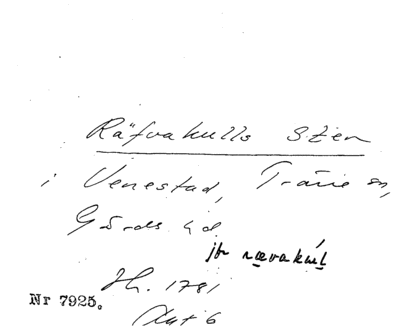 Räfvakulls Sten
i Venestad, Träne sn,
Gärds hd
jfr rævakúl
Jh. 1781
Akt 6
Nr 7925.